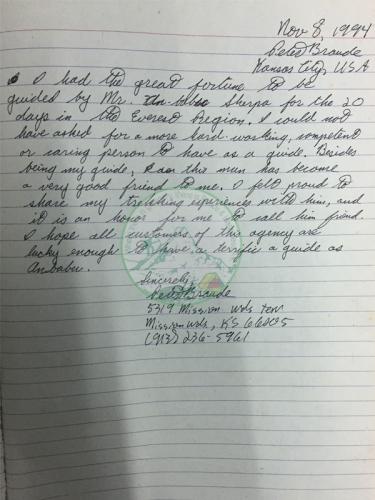 Nov 8, 1994
Peter Braude
Kansas City, USA
I had the great fortune to be
guided by Mr. Sherpa for the 20
days in the Everest Region. I could not
have asked for a more hard working, competent
or caring person to have as a guide. Besides
being my guide, this man has become
a very good friend to me. I felt proud to
share my trekking experiences with him, and
it is an honor for me to call him friend.
I hope all customers of this agency are
lucky enough to have a terrific a guide as
Anbabu.
Sincerely,
Peter Braude
5319 Mission Wds Terr
Mission Wds, KS 66205
(913) 236-5961